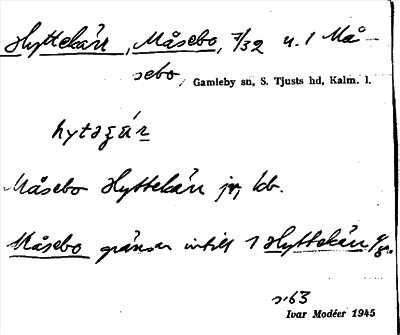 Hyttekärr, Måsebo, 7/32 u. 1 Må-
sebo, Gamleby sn, S. Tjusts hd, Kalm. l.
Måsebo Hyttekärr jr, kb.
Måsebo gränsar intill 1 Hyttekärr
s. 63
Ivar Modéer 1945